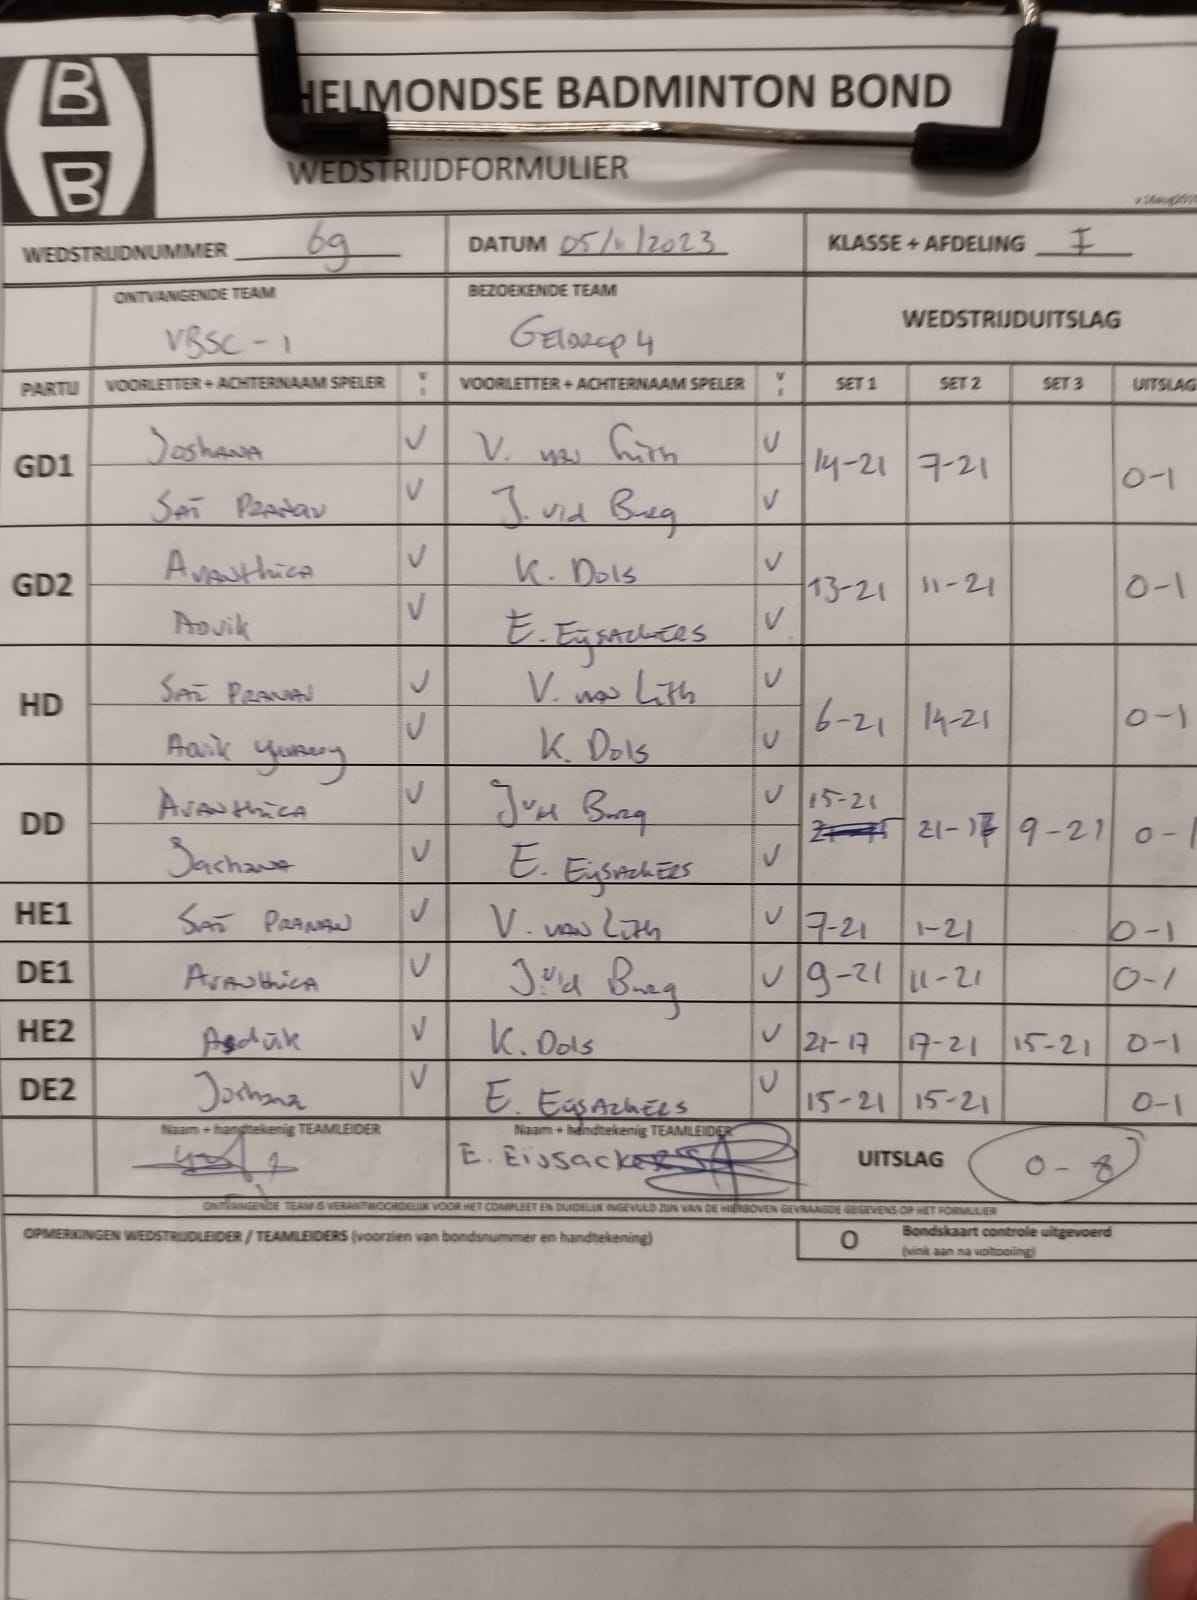 B
B
HELMONDSE BADMINTON BOND
WEDSTRIJDFORMULIER
WEDSTRIJDNUMMER 6g DATUM 05/11/2023 KLASSE + AFDELING I
ONTVANGENDE TEAM BEZOEKENDE TEAM WEDSTRIJDUITSLAG
VBSC-1 Geldrop 4
PARTIJ VOORLETTER + ACHTERNAAM SPELER VOORLETTER + ACHTERNAAM SPELER SET 1 SET 2 SET 3 UITSLAG
GD1 Joshana V V. van Lith V 14-21 7-21 0-1
Sai Pranav V J. v/d Burg V
GD2 Avanthica V K. Dols V 13-21 11-21 0-1
Aovik V E. Eijsackers V
HD Sai Pranav V V. van Lith V 6-21 14-21 0-1
Aavik V K. Dols V
DD Avanthica V J v/d Burg V 15-21 21-17 9-21 0-1
Joshana V E. Eijsackers V
HE1 Sai Pranav V V. van Lith V 7-21 1-21 0-1
DE1 Avanthica V J. v/d Burg V 9-21 11-21 0-1
HE2 V K. Dols V 21-17 17-21 15-21 0-1
DE2 Joshana V E. Eijsackers V 15-21 15-21 0-1
Naam + handtekenig TEAMLEIDER Naam + handtekenig TEAMLEIDER
E. Eijsackers UITSLAG 0-8
ONTVANGENDE TEAM IS VERANTWOORDELIJK VOOR HET COMPLEET EN DUIDELIJK INGEVULD ZIJN VAN DE HIERBOVEN GEVRAAGDE GEGEVENS OP HET FORMULIER
OPMERKINGEN WEDSTRIJDLEIDER / TEAMLEIDERS (voorzien van bondsnummer en handtekening) O Bondskaart controle uitgevoerd
(vink aan na voltooiing)